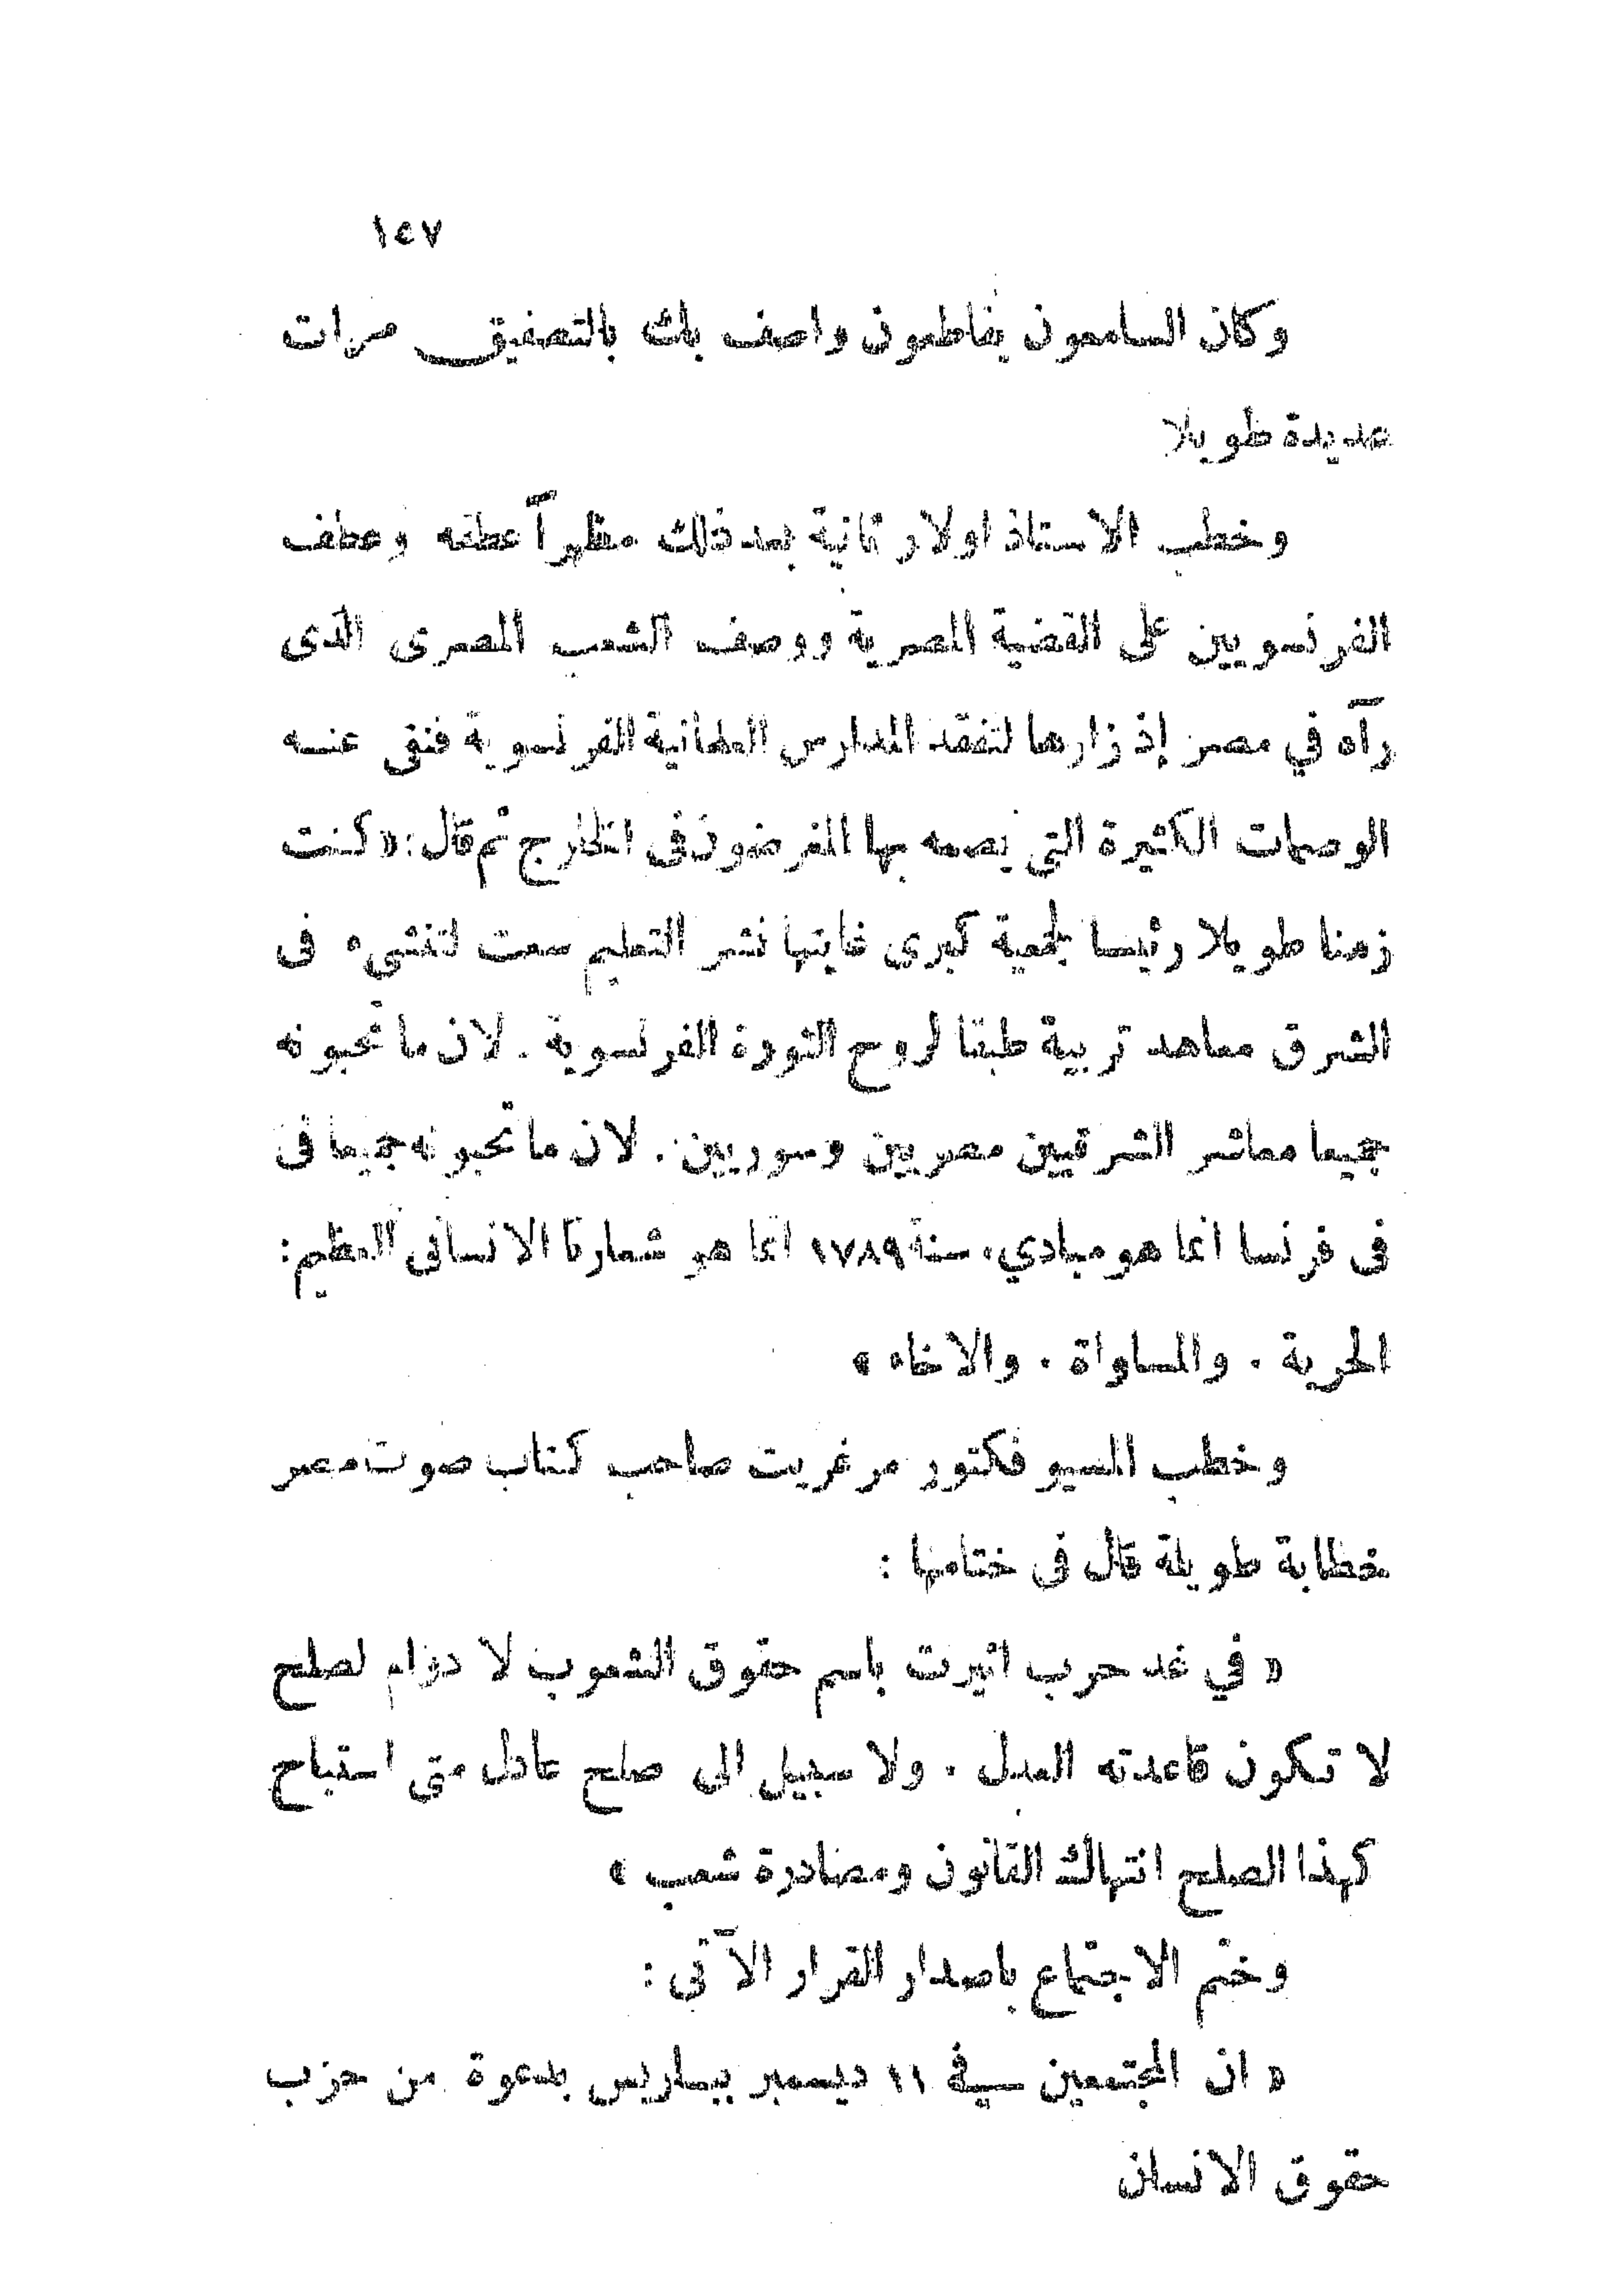 ١٤٧
وكان السامعون يقاطعون واصف بك بالتصفيق مرات
عديدة طويلا
وخطب الاستاذ اولار ثانية بعد ذلك مظهراً عطفه وعطف
الفرنسويين على القضية المصرية ووصف الشعب المصرى الذى
رآه في مصر إذ زارها لتفقد المدارس العلمانية الفرنسوية فنفى عنه
الوصمات الكثيرة التي يصمه بها المغرضون فى الخارج ثم قال : « كنت
زمنا طويلا رئيسا لجمعية كبرى غايتها نشر التعليم سعت لتنشىء فى
الشرق معاهد تربية طبقا لروح الثورة الفرنسوية . لان ما تحبونه
جميعا معاشر الشرقيين مصريين وسوريين . لان ما تحبونه جميعا فى
فى فرنسا انما هو مبادىء سنة ١٧٨٩ انما هو شعارنا الانسانى العظيم :
الحرية . والمساواة . والاخاء »
وخطب المسيو فكتور مرغريت صاحب كتاب صوت مصر
خطابة طويلة قال فى ختامها :
« في غد حرب اثيرت باسم حقوق الشعوب لا دوام لصلح
لا تكون قاعدته العدل . ولا سبيل الى صلح عادل متى استباح
كهذا الصلح انتهاك القانون ومصادرة شعب »
وختم الاجتماع باصدار القرار الآتى :
« ان المجتمعين في ١١ ديسمبر بباريس بدعوة من حزب
حقوق الانسان